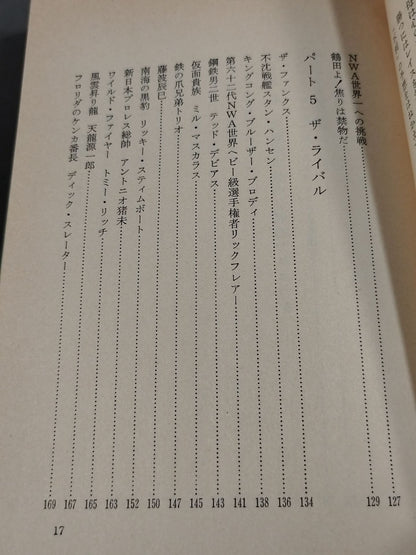 NWA世界一への挑戦 127
鶴田よ!焦りは禁物だ 129
パート5 ザ・ライバル
ザ・ファンクス 134
不沈戦艦スタン・ハンセン 136
キングコング・ブルーザー・ブロディ 138
第六十二代NWA世界ヘビー級選手権者リックフレアー 141
鋼鉄男二世 テッド・デビアス 143
仮面貴族 ミル・マスカラス 145
鉄の爪兄弟トリオ 147
藤波辰巳 150
南海の黒豹 リッキー・スティムボート 152
新日本プロレス総帥 アントニオ猪木 163
ワイルド・ファイヤー トミー・リッチ 165
風雲昇り龍 天龍源一郎 167
フロリダのケンカ番長 ディック・スレーター 169
17